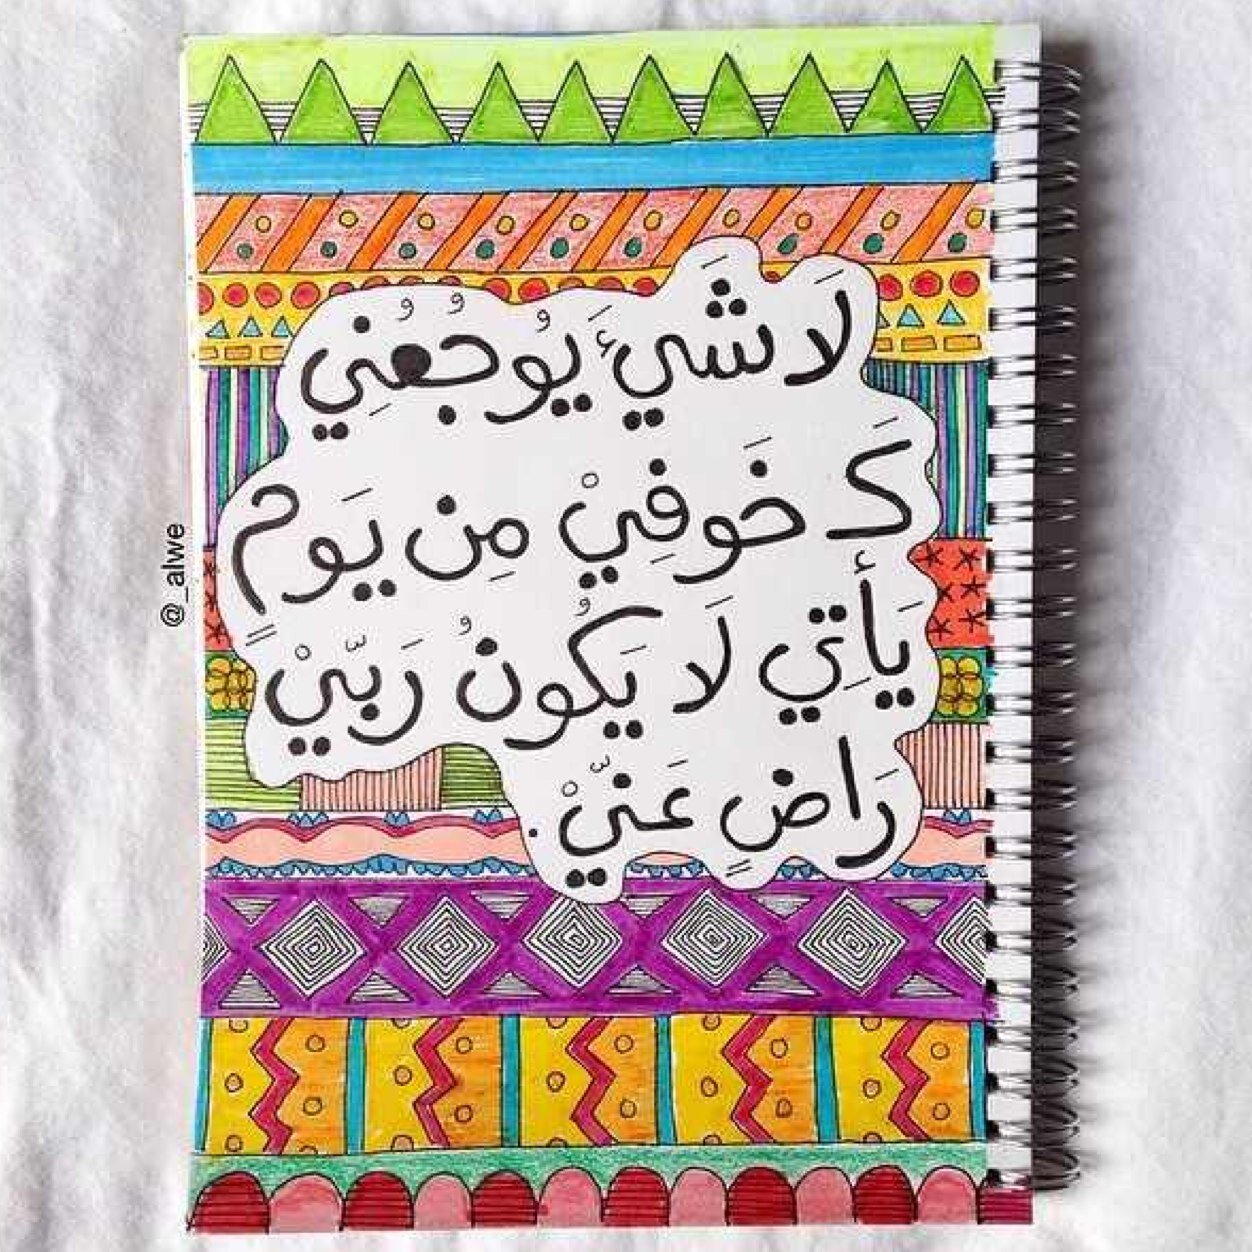 لَا شَيءَ يُوجُعُنِي
كَ خَوفِيْ مِن يَومٍ
يَأتِي لَا يَكُونُ رَبّيْ
رَاضٍ عَنّيْ.
@_alwe